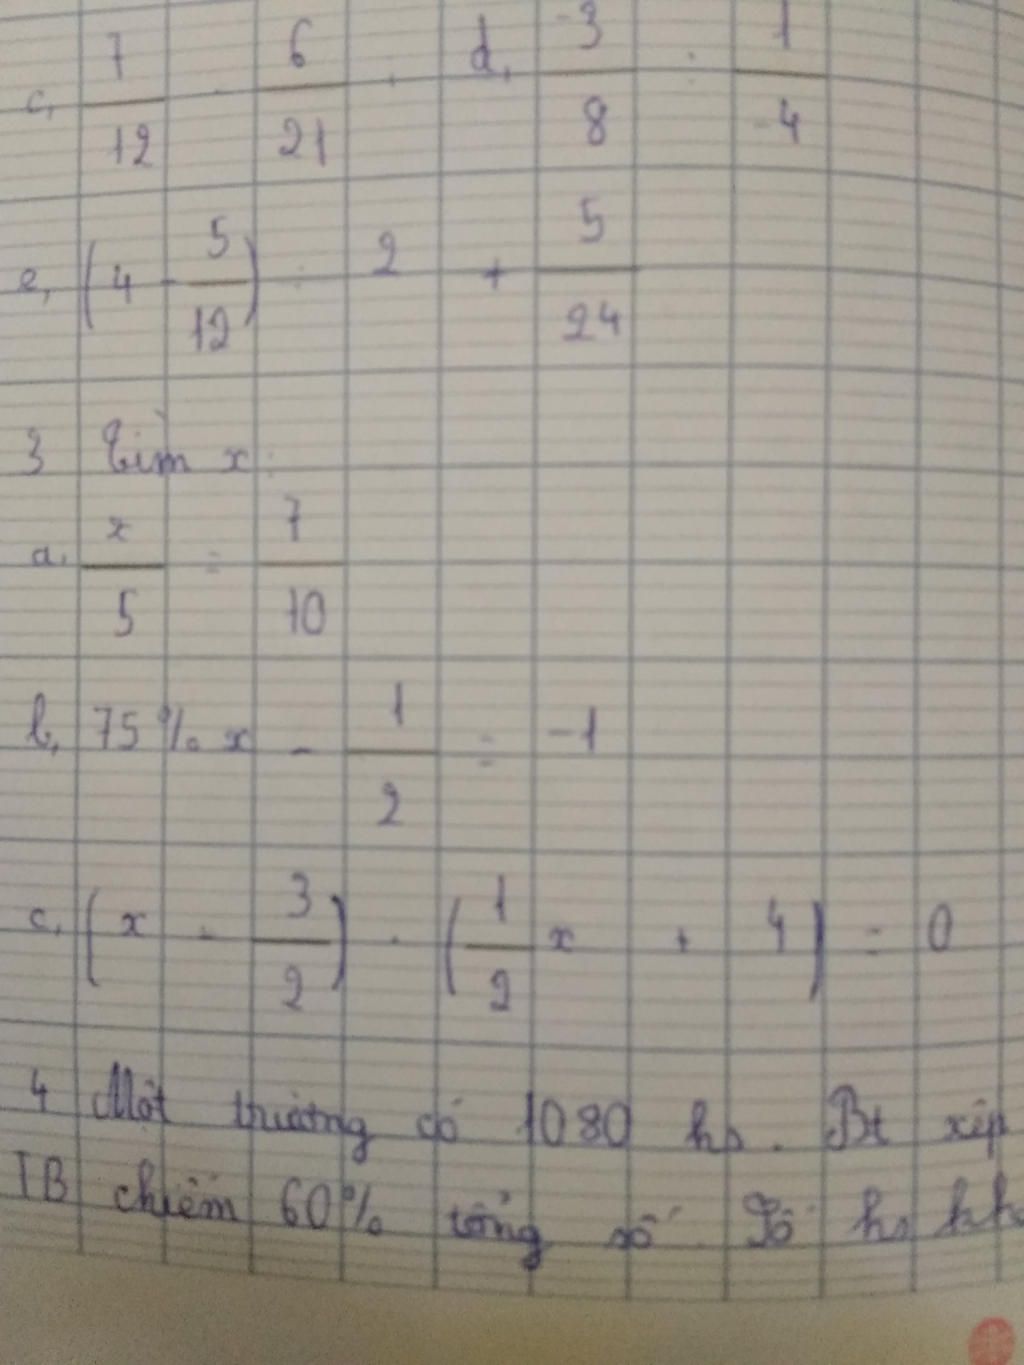 c, 7/12 . 6/21 . d, -3/8 : 1/-4
e, (4 - 5/12) : 2 + 5/24
3 Tìm x:
a, x/5 = 7/10
b, 75% x - 1/2 = -1
c, (x - 3/2) . (1/2 x + 4) = 0
4 Một trường có 1080 hs. Bt xếp
TB chiếm 60% tổng số. Số hs kh